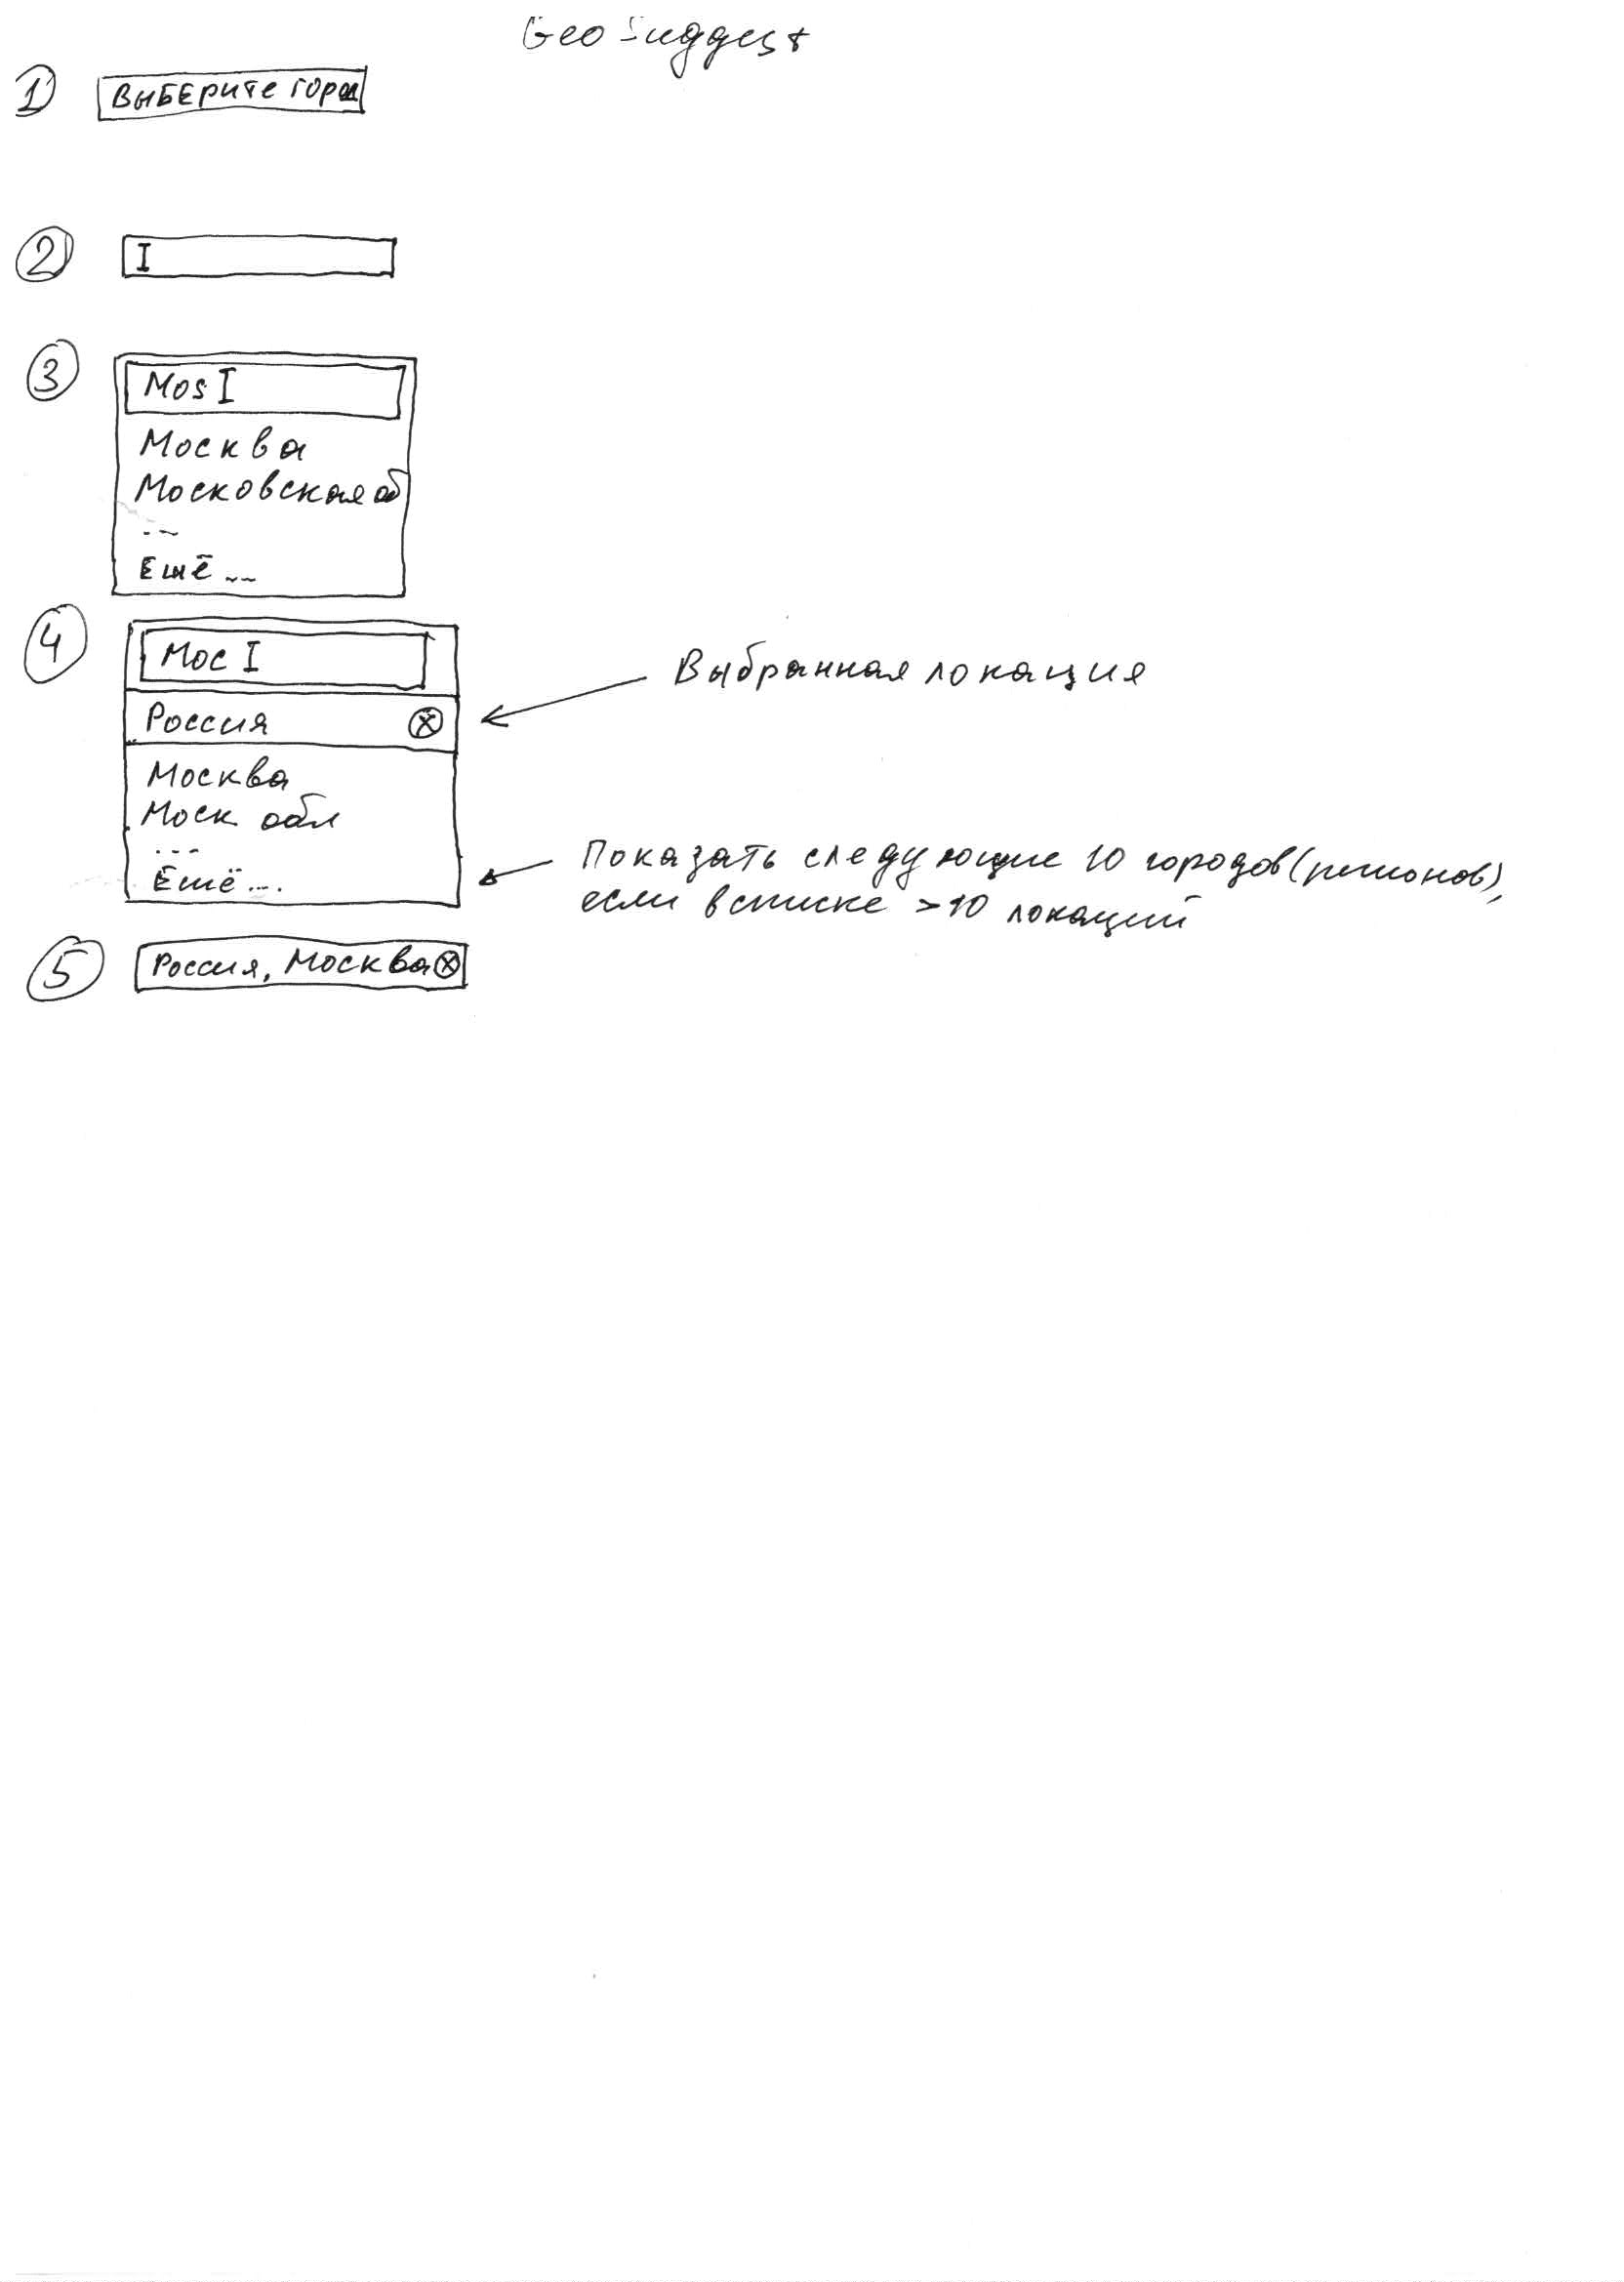 Geo Suggest
1 Выберите город
2 I
3 Mos I
Москва
Московская об
...
Ещё ...
4 Мос I
Россия ⓧ
Выбранная локация
Москва
Моск обл
...
Ещё ...
Показать следующие 10 городов (регионов),
если в списке >10 локаций
5 Россия, Москва ⓧ